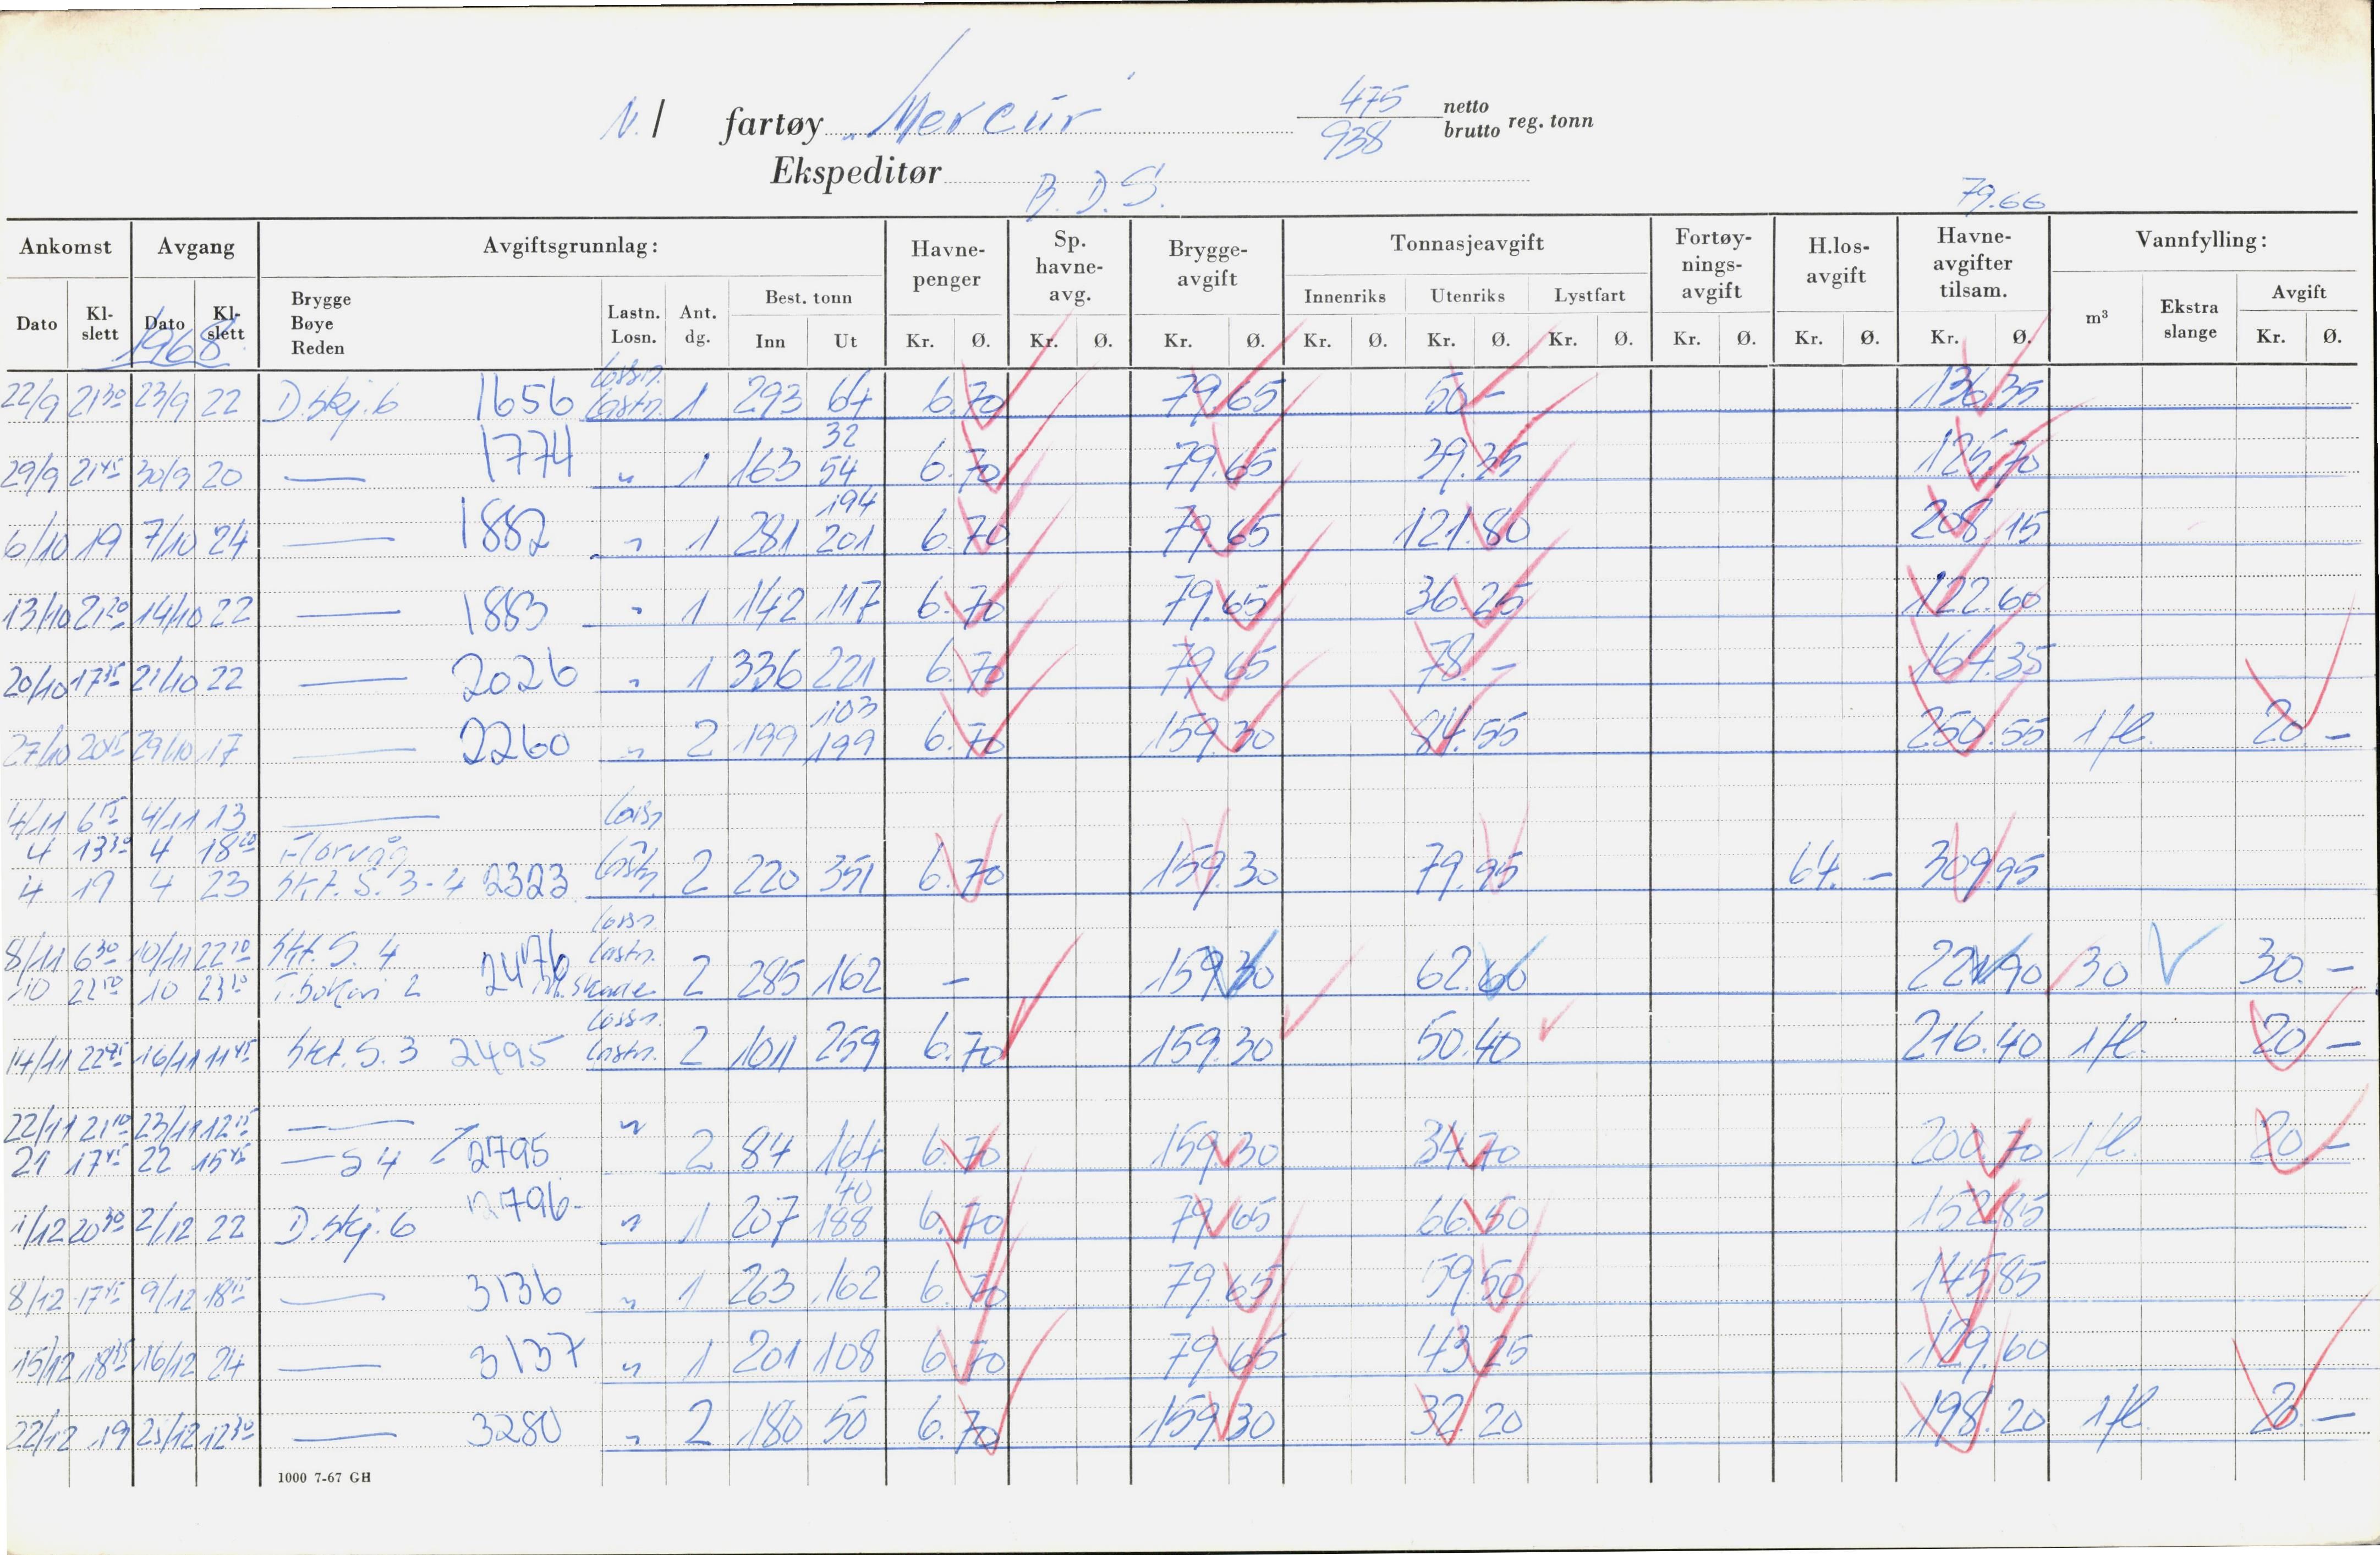 N. 1 fartøy "Mercur" 475 netto
938 brutto reg. tonn
Ekspeditør B. D. S.
79.66
Ankomst Avgang Avgiftsgrunnlag: Havne-penger Sp. havne-avg. Brygge-avgift Tonnasjeavgift Fortøy-nings-avgift H.los-avgift Havne-avgifter tilsam. Vannfylling:
Dato Kl-slett Dato Kl-slett Brygge Bøye Reden Lastn. Losn. Ant. dg. Best. tonn Innenriks Utenriks Lystfart m³ Ekstra slange Avgift
Inn Ut Kr. Ø. Kr. Ø. Kr. Ø. Kr. Ø. Kr. Ø. Kr. Ø. Kr. Ø. Kr. Ø. Kr. Ø. Kr. Ø.
1968
Lossn.
22/9 21³⁰ 23/9 22 D.skj. 6 1656 Lastn. 1 293 64 6.70 79.65 50 - 136.35
32
29/9 21⁴⁵ 30/9 20 — 1774 " 1 163 54 6.70 79.65 39.35 125.70
194
6/10 19 7/10 24 — 1882 " 1 281 201 6.70 79.65 121.80 208.15
13/10 21²⁰ 14/10 22 — 1883 " 1 142 117 6.70 79.65 36.25 122.60
20/10 17³⁵ 21/10 22 — 2026 " 1 336 221 6.70 79.65 78.- 164.35
103
27/10 20¹⁵ 29/10 17 — 2260 " 2 199 199 6.70 159.30 84.55 250.55 1 fl. 20 -
4/11 6¹⁵ 4/11 13 — Lossn
4 13³⁰ 4 18²⁰ Florvåg
4 19 4 23 Skt. S. 3-4 2323 Lastn 2 220 351 6.70 159.30 79.95 64. - 309.95
Lossn
8/11 6³⁰ 10/11 22¹⁰ Skt. S. 4 Lastn.
10 22²⁰ 10 23¹⁰ 2476 2 285 162 - 159.30 62.60 221.90 30 V 30. -
Lossn.
14/11 22⁴⁵ 16/11 11⁴⁵ Skt. S. 3 2495 Lastn. 2 101 259 6.70 159.30 50.40 216.40 1 fl. 20 -
22/11 21¹⁰ 23/11 12¹⁵ — "
21 17⁴⁵ 22 15⁴⁵ — S 4 2795 2 84 164 6.70 159.30 34.70 200.70 1 fl. 20 -
40
1/12 20³⁰ 2/12 22 D.skj. 6 2796 " 1 207 188 6.70 79.65 66.50 152.85
8/12 17⁴⁵ 9/12 18¹⁵ — 3136 " 1 263 162 6.70 79.65 59.50 145.85
15/12 18³⁵ 16/12 24 — 3137 " 1 201 108 6.70 79.65 43.25 129.60
22/12 19 23/12 12³⁰ — 3280 " 2 180 50 6.70 159.30 32.20 198.20 1 fl. 20. -
1000 7-67 GH